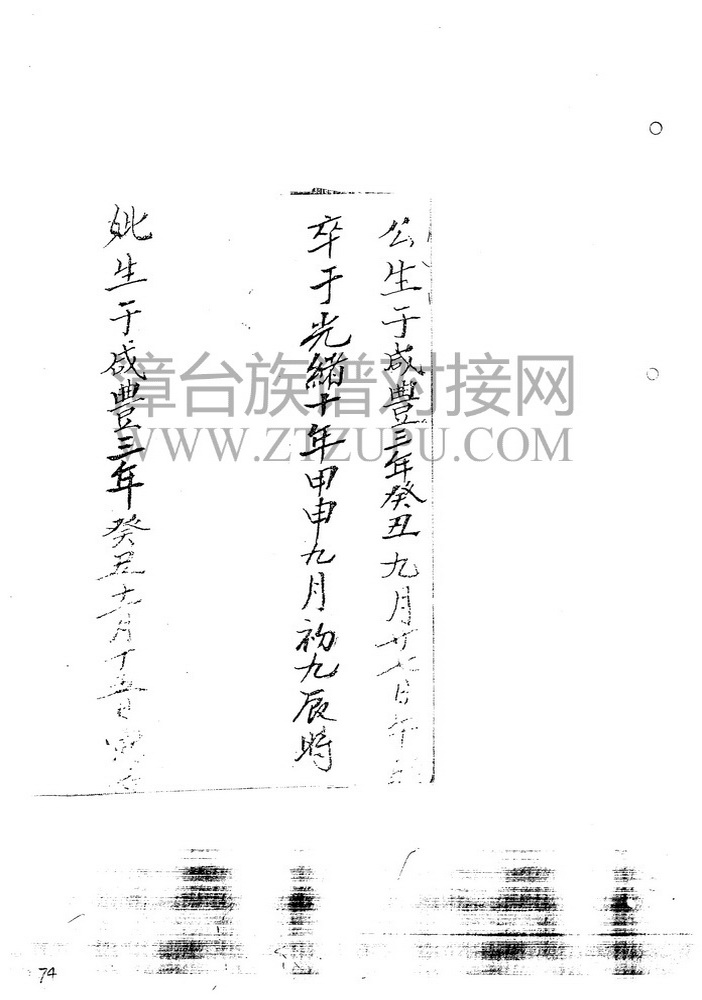 公生于咸豐三年癸丑九月廿七日午時
卒于光緒十年甲申九月初九辰時
妣生于咸豐三年癸丑十一月十五日
漳台族谱对接网
WWW.ZTZUPU.COM
74